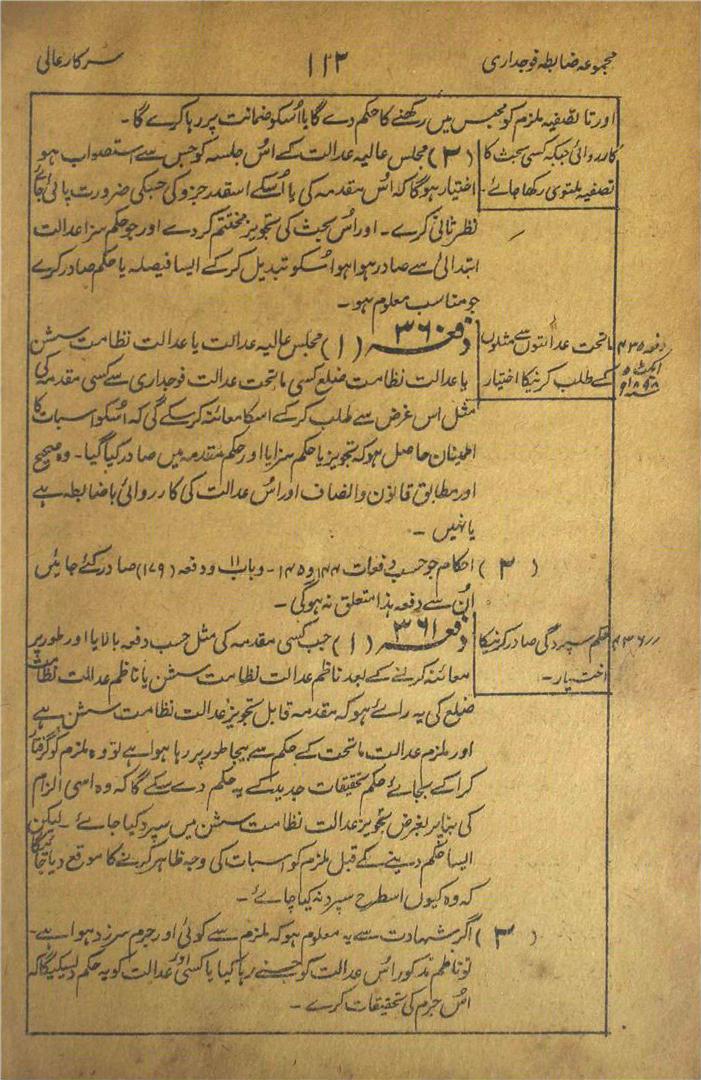 مجموعہ ضابطہ فوجداری ۱۱۲ سرکار عالی
اور تا تصفیہ ملزم کو محبس میں رکھنے کا حکم دے گا یا اُسکو ضمانت پر رہا کرے گا۔
کارروائی جبکہ کسی بحث کا
تصفیہ ملتوی رکھا جائے۔
(۲) مجلس عالیہ عدالت کے اُس جلسہ کو جس سے استصواب ہو
اختیار ہوگا کہ اُس مقدمہ کی یا اُسکے اسقدر جزو کی جسکی ضرورت پائی جائے
نظر ثانی کرے۔ اور اُس بحث کی تجویز مختتم کردے اور جو حکم سزا عدالت
ابتدائی سے صادر ہوا ہو اُسکو تبدیل کرکے ایسا فیصلہ یا حکم صادر کرے
جو مناسب معلوم ہو۔
دفعہ ۴۳۵
ایکٹ ۵
۱۸۹۸
ماتحت عدالتوں سے مثلوں
کے طلب کرنیکا اختیار
دفعہ ۳۶۰ (۱) مجلس عالیہ عدالت یا عدالت نظامت سشن
یا عدالت نظامت ضلع کسی ماتحت عدالت فوجداری سے کسی مقدمہ کی
مثل اس غرض سے طلب کرکے اسکا معائنہ کرسکے گی کہ اُسکو اسبات کا
اطمینان حاصل ہو کہ تجویز یا حکم سزا یا اور حکم مقدمہ میں صادر کیا گیا۔ وہ صحیح
اور مطابق قانون و انصاف اور اس عدالت کی کارروائی باضابطہ ہے
یا نہیں۔
(۲) احکام جو حسب دفعات ۱۴۴ و ۱۴۵۔ و باب ۱۱ و دفعہ (۱۷۹) صادر کئے جائیں
اُن سے دفعہ ہذا متعلق نہ ہوگی۔
۴۳۶ //
حکم سپردگی صادر کرنیکا
اختیار۔
دفعہ ۳۶۱ (۱) جب کسی مقدمہ کی مثل حسب دفعہ بالا یا اور طور پر
معائنہ کرنے کے بعد ناظم عدالت نظامت سشن یا ناظم عدالت نظامت
ضلع کی یہ رائے ہو کہ مقدمہ قابل تجویز عدالت نظامت سشن ہے
اور ملزم عدالت ماتحت کے حکم سے بیجا طور پر رہا ہوا ہے تو وہ ملزم کو گرفتار
کرا کے بجائے حکم تحقیقات جدید کے یہ حکم دے سکے گا کہ وہ اسی الزام
کی بنا پر بغرض تجویز عدالت نظامت سشن میں سپرد کیا جائے۔ لیکن
ایسا حکم دینے کے قبل ملزم کو اسبات کی وجہ ظاہر کرنے کا موقع دیا جائیگا
کہ وہ کیوں اسطرح سپرد نہ کیا جائے۔
(۲) اگر شہادت سے یہ معلوم ہو کہ ملزم سے کوئی اور جرم سرزد ہوا ہے۔
تو ناظم مذکور اُس عدالت کو جسنے رہا کیا یا کسی اور عدالت کو یہ حکم دیسکیگا کہ
اُس جرم کی تحقیقات کرے۔